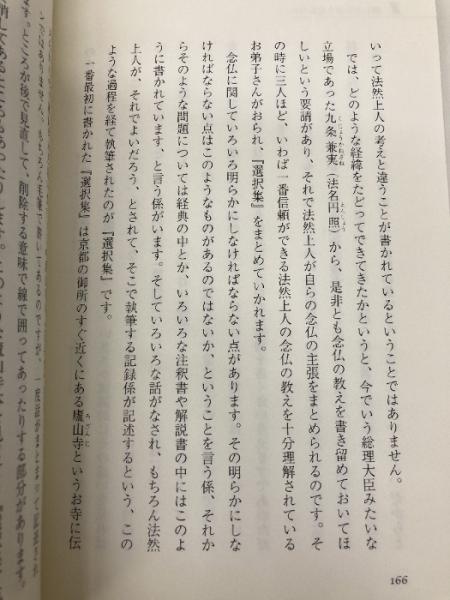 いって法然上人の考えと違うことが書かれているということではありません。
では、どのような経緯をたどってできてきたかというと、今でいう総理大臣みたいな
立場であった九条兼実（法名円照）から、是非とも念仏の教えを書き留めておいてほ
くじょうかねざね
えんしょう
しいという要請があり、それで法然上人が自らの念仏の主張をまとめられるのです。そ
の時に三人ほど、いわば一番信頼ができる法然上人の念仏の教えを十分理解されている
お弟子さんがおられ、『選択集』をまとめていかれます。
念仏に関していろいろ明らかにしなければならない点があります。その明らかにしな
ければならない点はこのようなものがあるのではないか、ということを言う係、それか
らそのような問題については経典の中とか、いろいろな注釈書や解説書の中にはこのよ
うに書かれています、と言う係がいます。そしていろいろな話がなされ、もちろん法然
上人が、それでよいだろう、とされて、そこで執筆する記録係が記述するという、この
ような過程を経て執筆されたのが『選択集』です。
一番最初に書かれた『選択集』は京都の御所のすぐ近くにある廬山寺というお寺に伝
ろざんじ
ます。ところが後で見直して、削除する意味で線で囲ってあったりする部分があります。
166